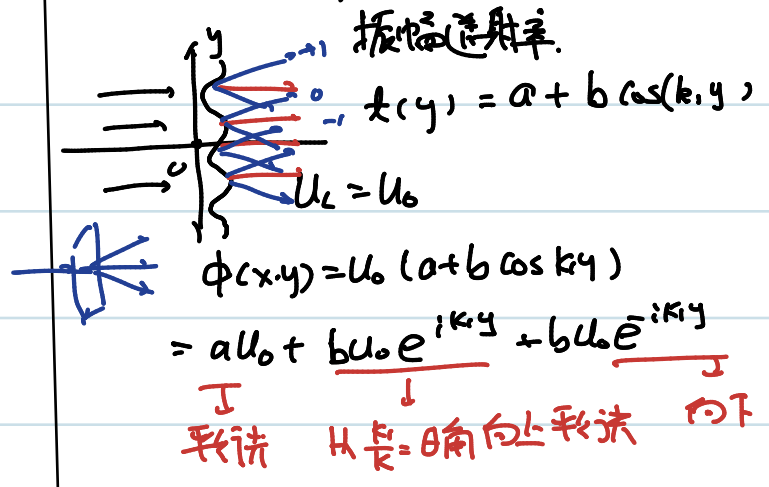 振幅透射率.
y
+1
0
-1
t(y) = a + b cos(k₁y)
0
U_L = U₀
φ(x.y) = U₀ (a+b cos k₁y)
= aU₀ + bU₀e^{ik₁y} + bU₀e^{-ik₁y}
k₁/k = θ角向上 向下